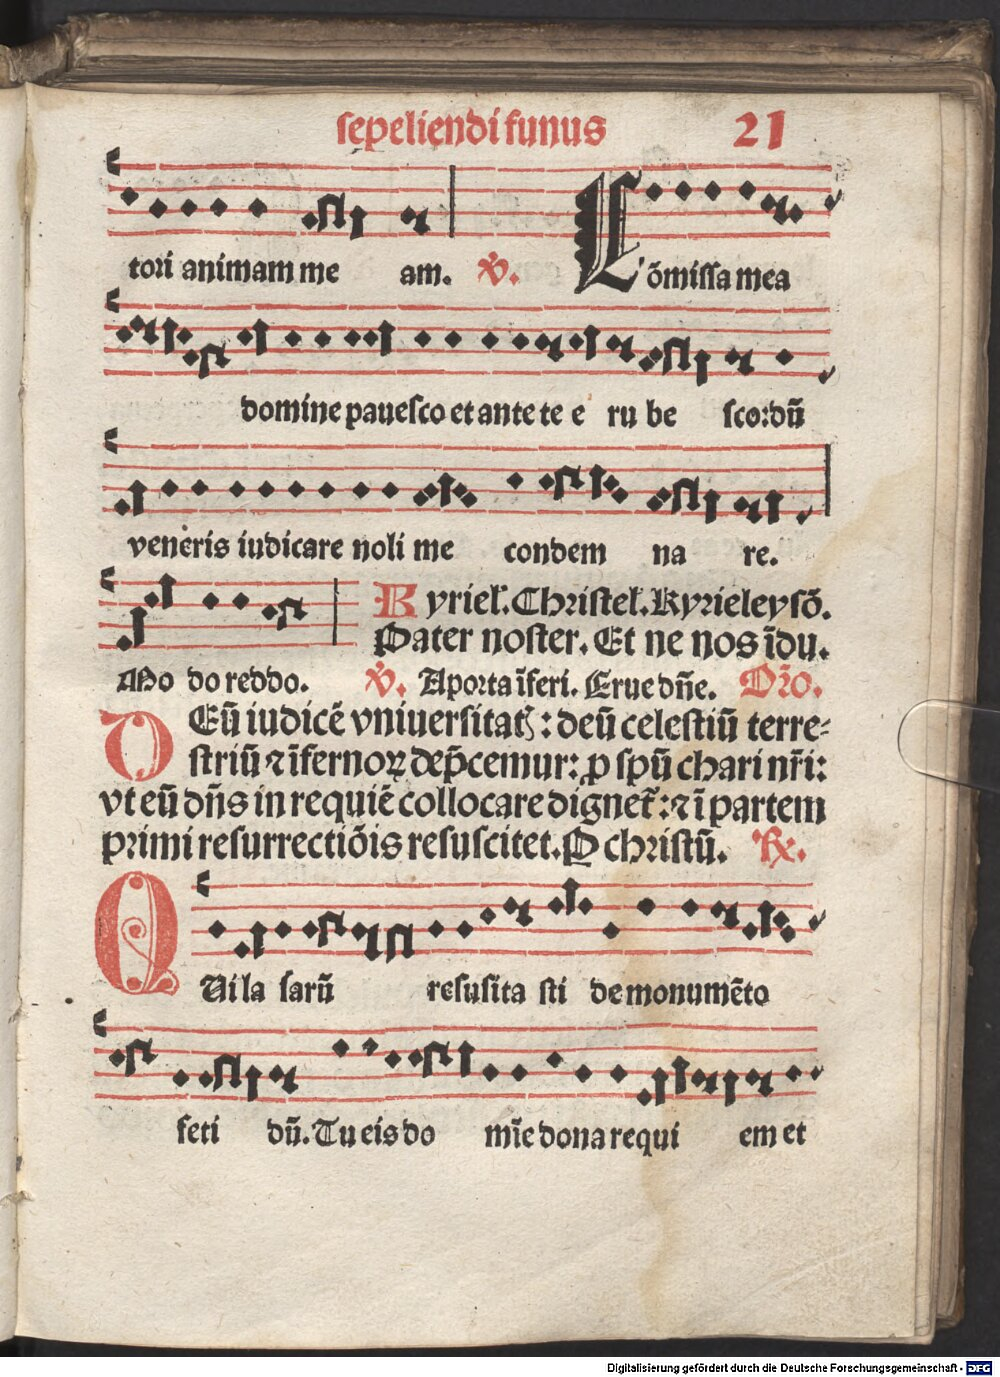 sepeliendi funus 21
tori animam me am. ℣. Cōmissa mea
domine pauesco et ante te e ru be sco: dū
veneris iudicare noli me condem na re.
Kyriel̄. Christel̄. Kyrieleysō.
Pater noster. Et ne nos īdu.
Mo do reddo. ℣. A porta īferi. Erue dn̄e. Or̄o.
DEū iudicē vniuersitatꝭ: deū celestiū terre⸗
striū ⁊ īfernoꝝ dep̄cemur: ꝓ spū chari nr̄i:
vt eū dn̄s in requiē collocare dignet᷑: ⁊ ī partem
primi resurrectiōis resuscitet. P christū. ℞.
QUi la sarū resusita sti de monumēto
feti dū. Tu eis do mīe dona requi em et
Digitalisierung gefördert durch die Deutsche Forschungsgemeinschaft - DFG